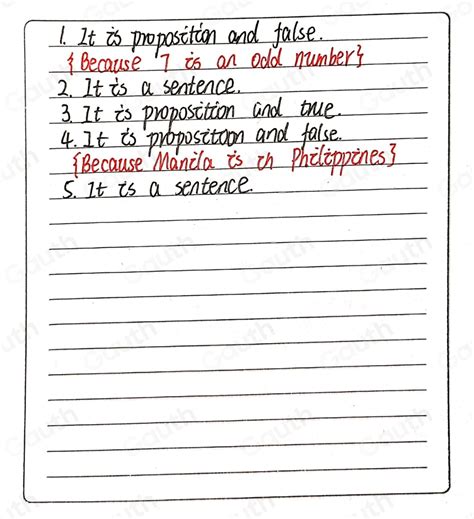 1. It is proposition and false.
{Because 7 is an odd number}
2. It is a sentence.
3. It is proposition and true.
4. It is propositoon and false.
{Because Manila is in Philippines}
5. It is a sentence.